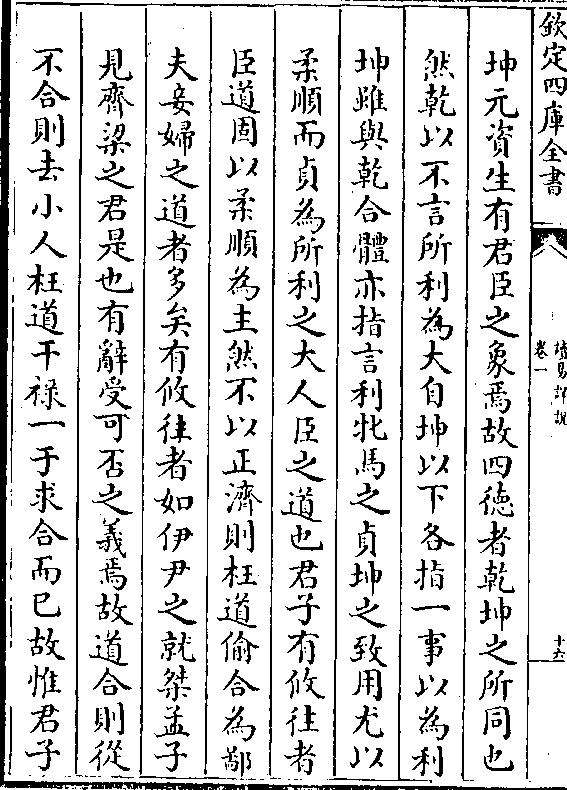 欽定四庫全書
讀易詳說
卷一
十六
坤元資生有君臣之象焉故四徳者乾坤之所同也
然乾以不言所利為大自坤以下各指一事以為利
坤雖與乾合體亦指言利牝馬之貞坤之致用尤以
柔順而貞為所利之大人臣之道也君子有攸往者
臣道固以柔順為主然不以正濟則枉道偷合為鄙
夫妾婦之道者多矣有攸往者如伊尹之就桀孟子
見齊梁之君是也有辭受可否之義焉故道合則從
不合則去小人枉道干禄一于求合而已故惟君子